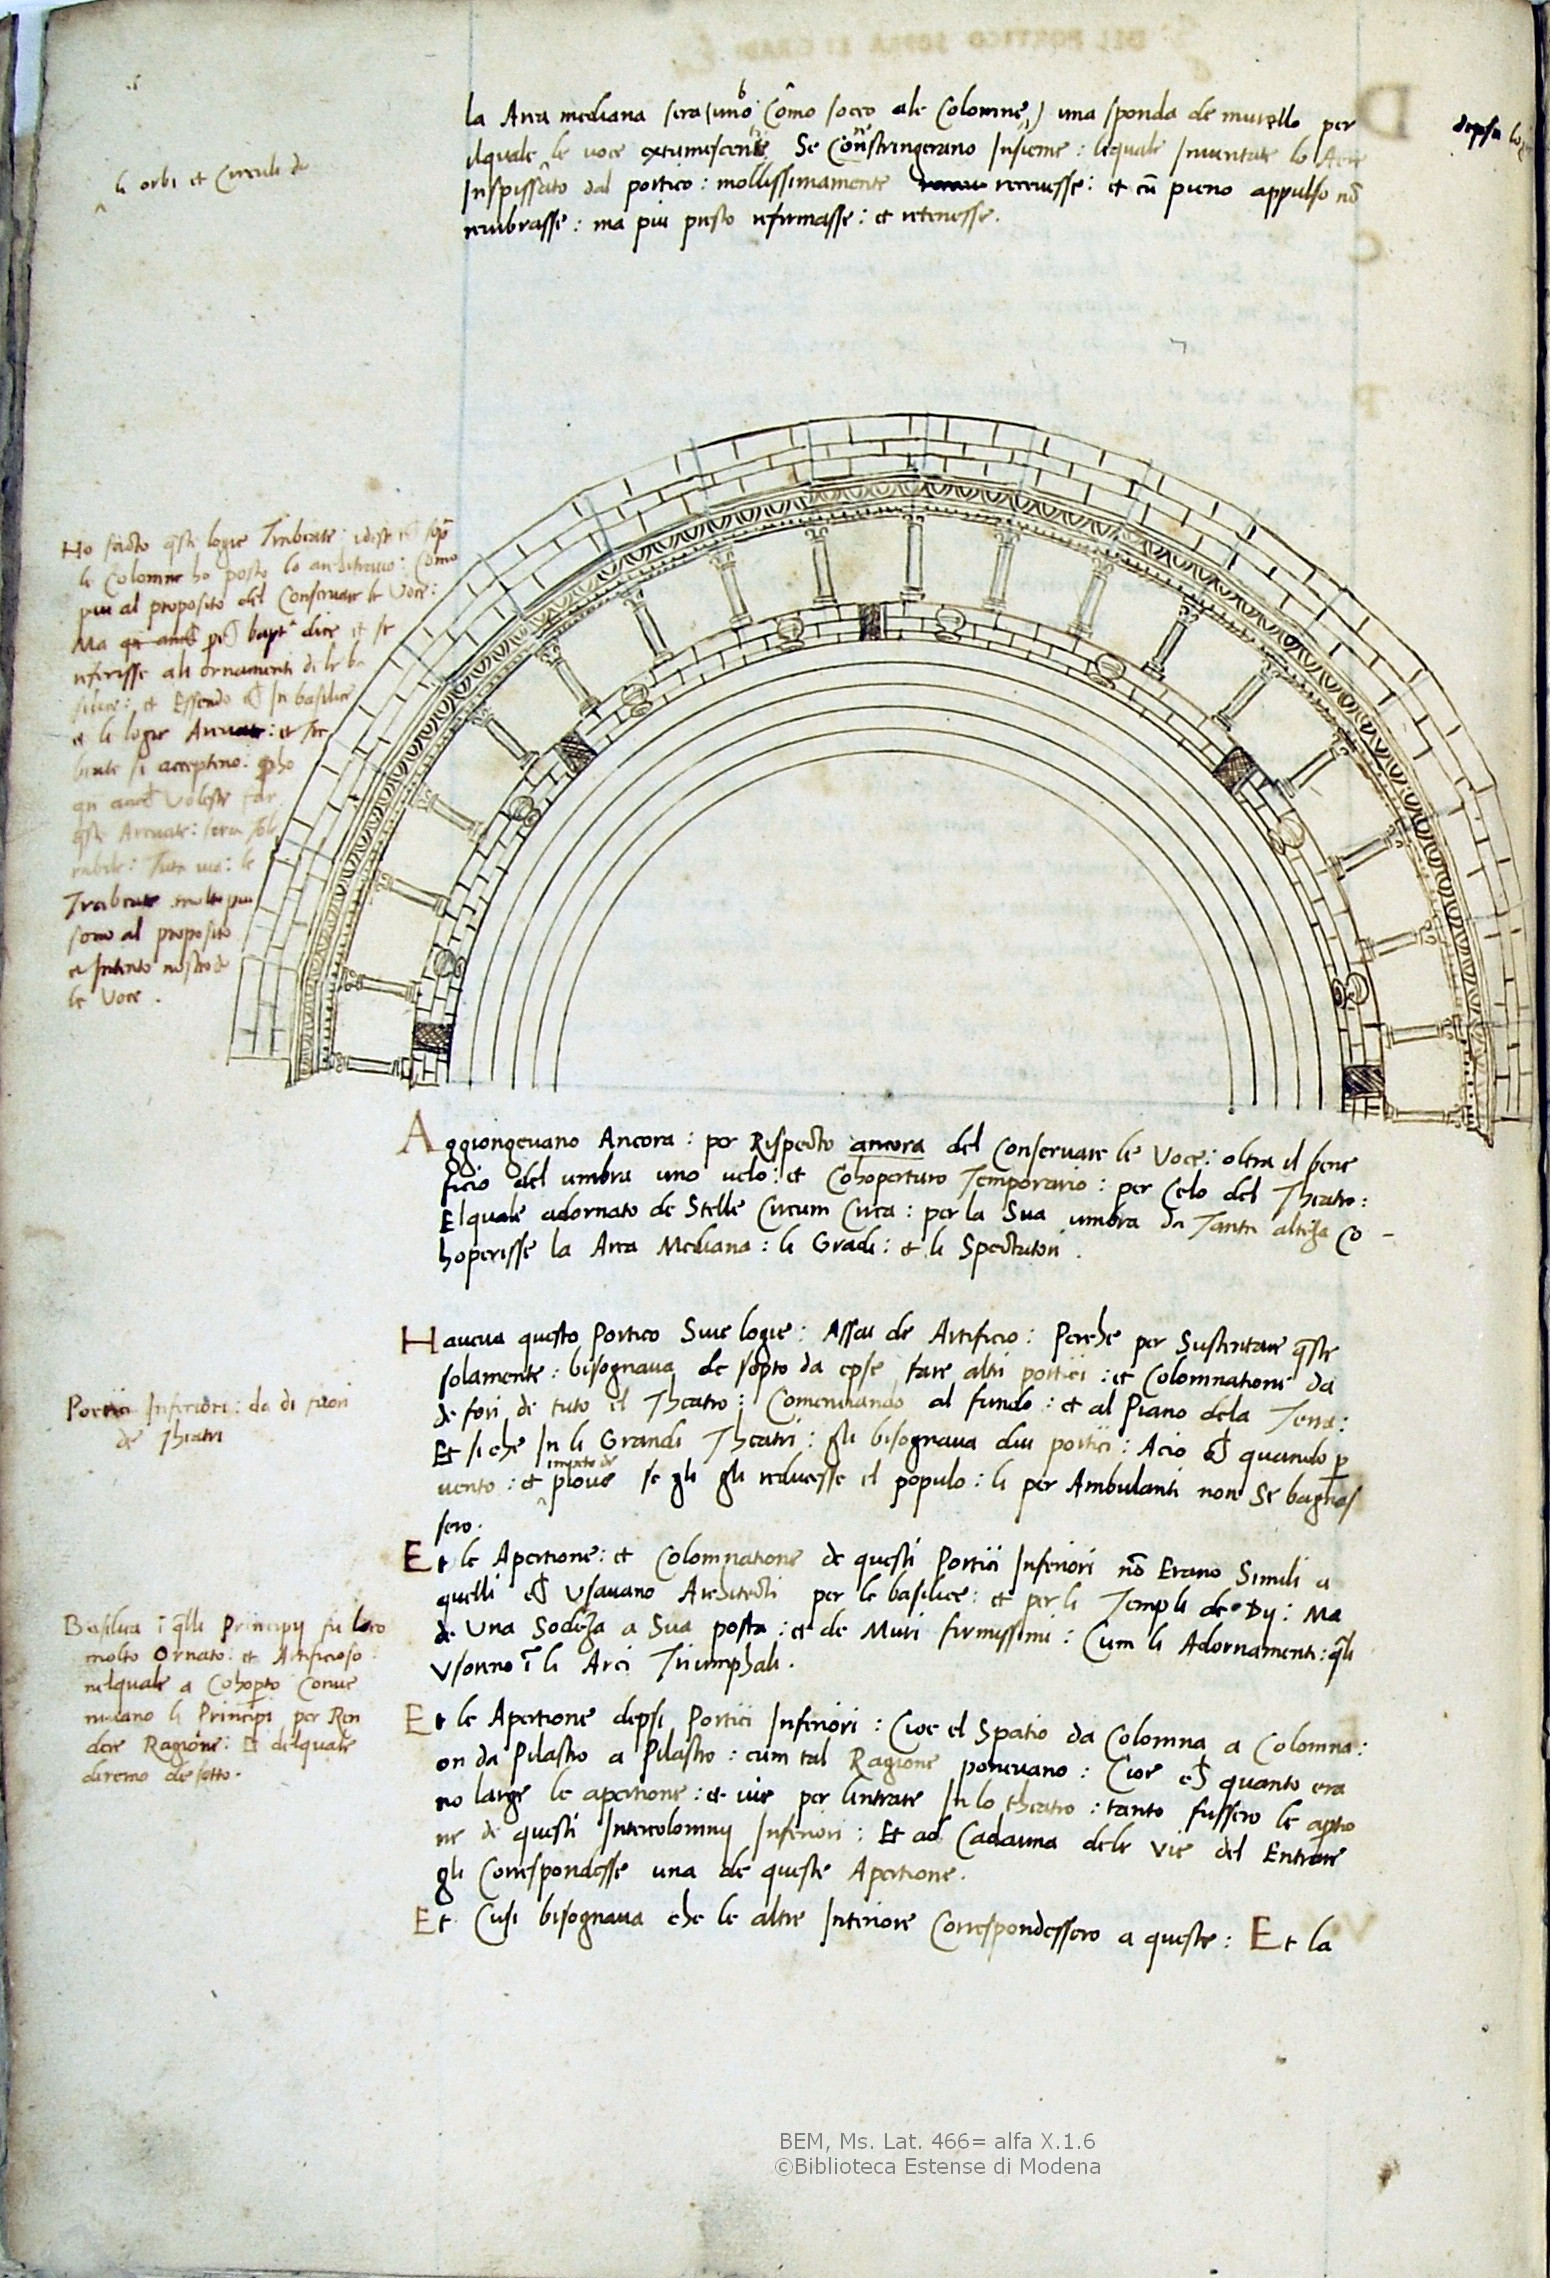 la Area mediana sera (uno Como socco ale Colomne) una sponda de murello per
ilquale le voce Se Constringerano Insieme : lequale Inventate lo Aere
Inspissato dal portico : mollissimamente recevesse : et cu pieno appulso no
reverbrasse : ma piu presto refirmasse : et retenesse .
li orbi et Circuli de
depsa
Ho facto qste logie Trabeate :
le Colomne ho posto lo architravo : Como
piu al proposito del Conservare le Voce :
Ma bapta dice et se
referisse ali ornamenti de le ba
silice : et Essendo In basilice
et le logie Arcuate : et tra
beate si acceptino :
Voleste far
qste Arcuate :
Trabeate molto piu
sono al proposito
et Intento nostro de
le Voce .
Aggiongevano Ancora : per Rispecto ancora del Conservare le Voce : oltra il bene
ficio del umbra uno velo : et Cohoperturo Temporario : per Celo del Theatro :
Elquale adornato de Stelle Circum Circa : per la Sua umbra da Tanta alteza Co -
hoperisse la Area Mediana : li Gradi : et li Spectatori .
Haveva questo Portico Sue logie : Assai de Artificio : Perche per Sustentare qste
solamente : bisognava de sopto da epse fare altri portici : et Colomnatione da
de fori de tuto el Theatro : Comenciando al fundo : et al Piano dela Terra :
Et si che In li Grandi Theatri : gli bisognava dui portici : Acio quando p
vento : et impeto de piove se gli gli reducesse el populo : li per Ambulanti non Se bagnas
sero .
Portici Inferiori : da di fuori
de Theatri
Et le Apertione : et Colomnatione de questi Portici Inferiori no Erano Simili a
quelli Usavano Architecti per le basilice : et per li Templi de Dij : Ma
de Una Sodeza a Sua posta : et de Muri firmissimi : Cum li Adornamenti : qli
Usorno i li Arci Triumphali .
Basilica i qlli Principij fu loco
molto Ornato : et Artificioso :
nelquale a Cohoperto Conve
nivano li Principi per Ren
dere Ragione : Et delquale
diremo de sotto .
Et le Apertione depsi Portici Inferiori : Cioe el Spatio da Colomna a Colomna :
on da Pilastro a Pilastro : cum tal Ragione ponevano : Cioe quanto era
no large le apertione : et vie per lintrare In lo theatro : tanto fussero le aptio
ne de questi Intercolomnij Inferiori : Et ad Cadauna dele Vie del Entrare
gli Correspondesse una de queste Apertione .
Et Cusi bisognava che le altre Interiore Correspondessero a queste : Et la
BEM, Ms. Lat. 466= alfa X.1.6
©Biblioteca Estense di Modena